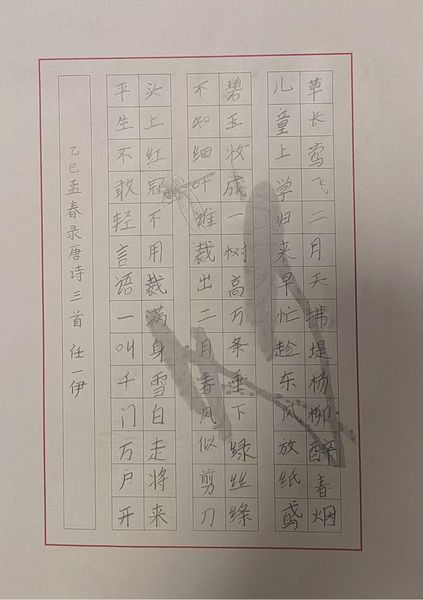 草长莺飞二月天拂堤杨柳醉春烟
儿童上学归来早忙趁东风放纸鸢
碧玉妆成一树高万条垂下绿丝绦
不知细叶谁裁出二月春风似剪刀
头上红冠不用裁满身雪白走将来
平生不敢轻言语一叫千门万户开
乙巳孟春录唐诗三首 任一伊